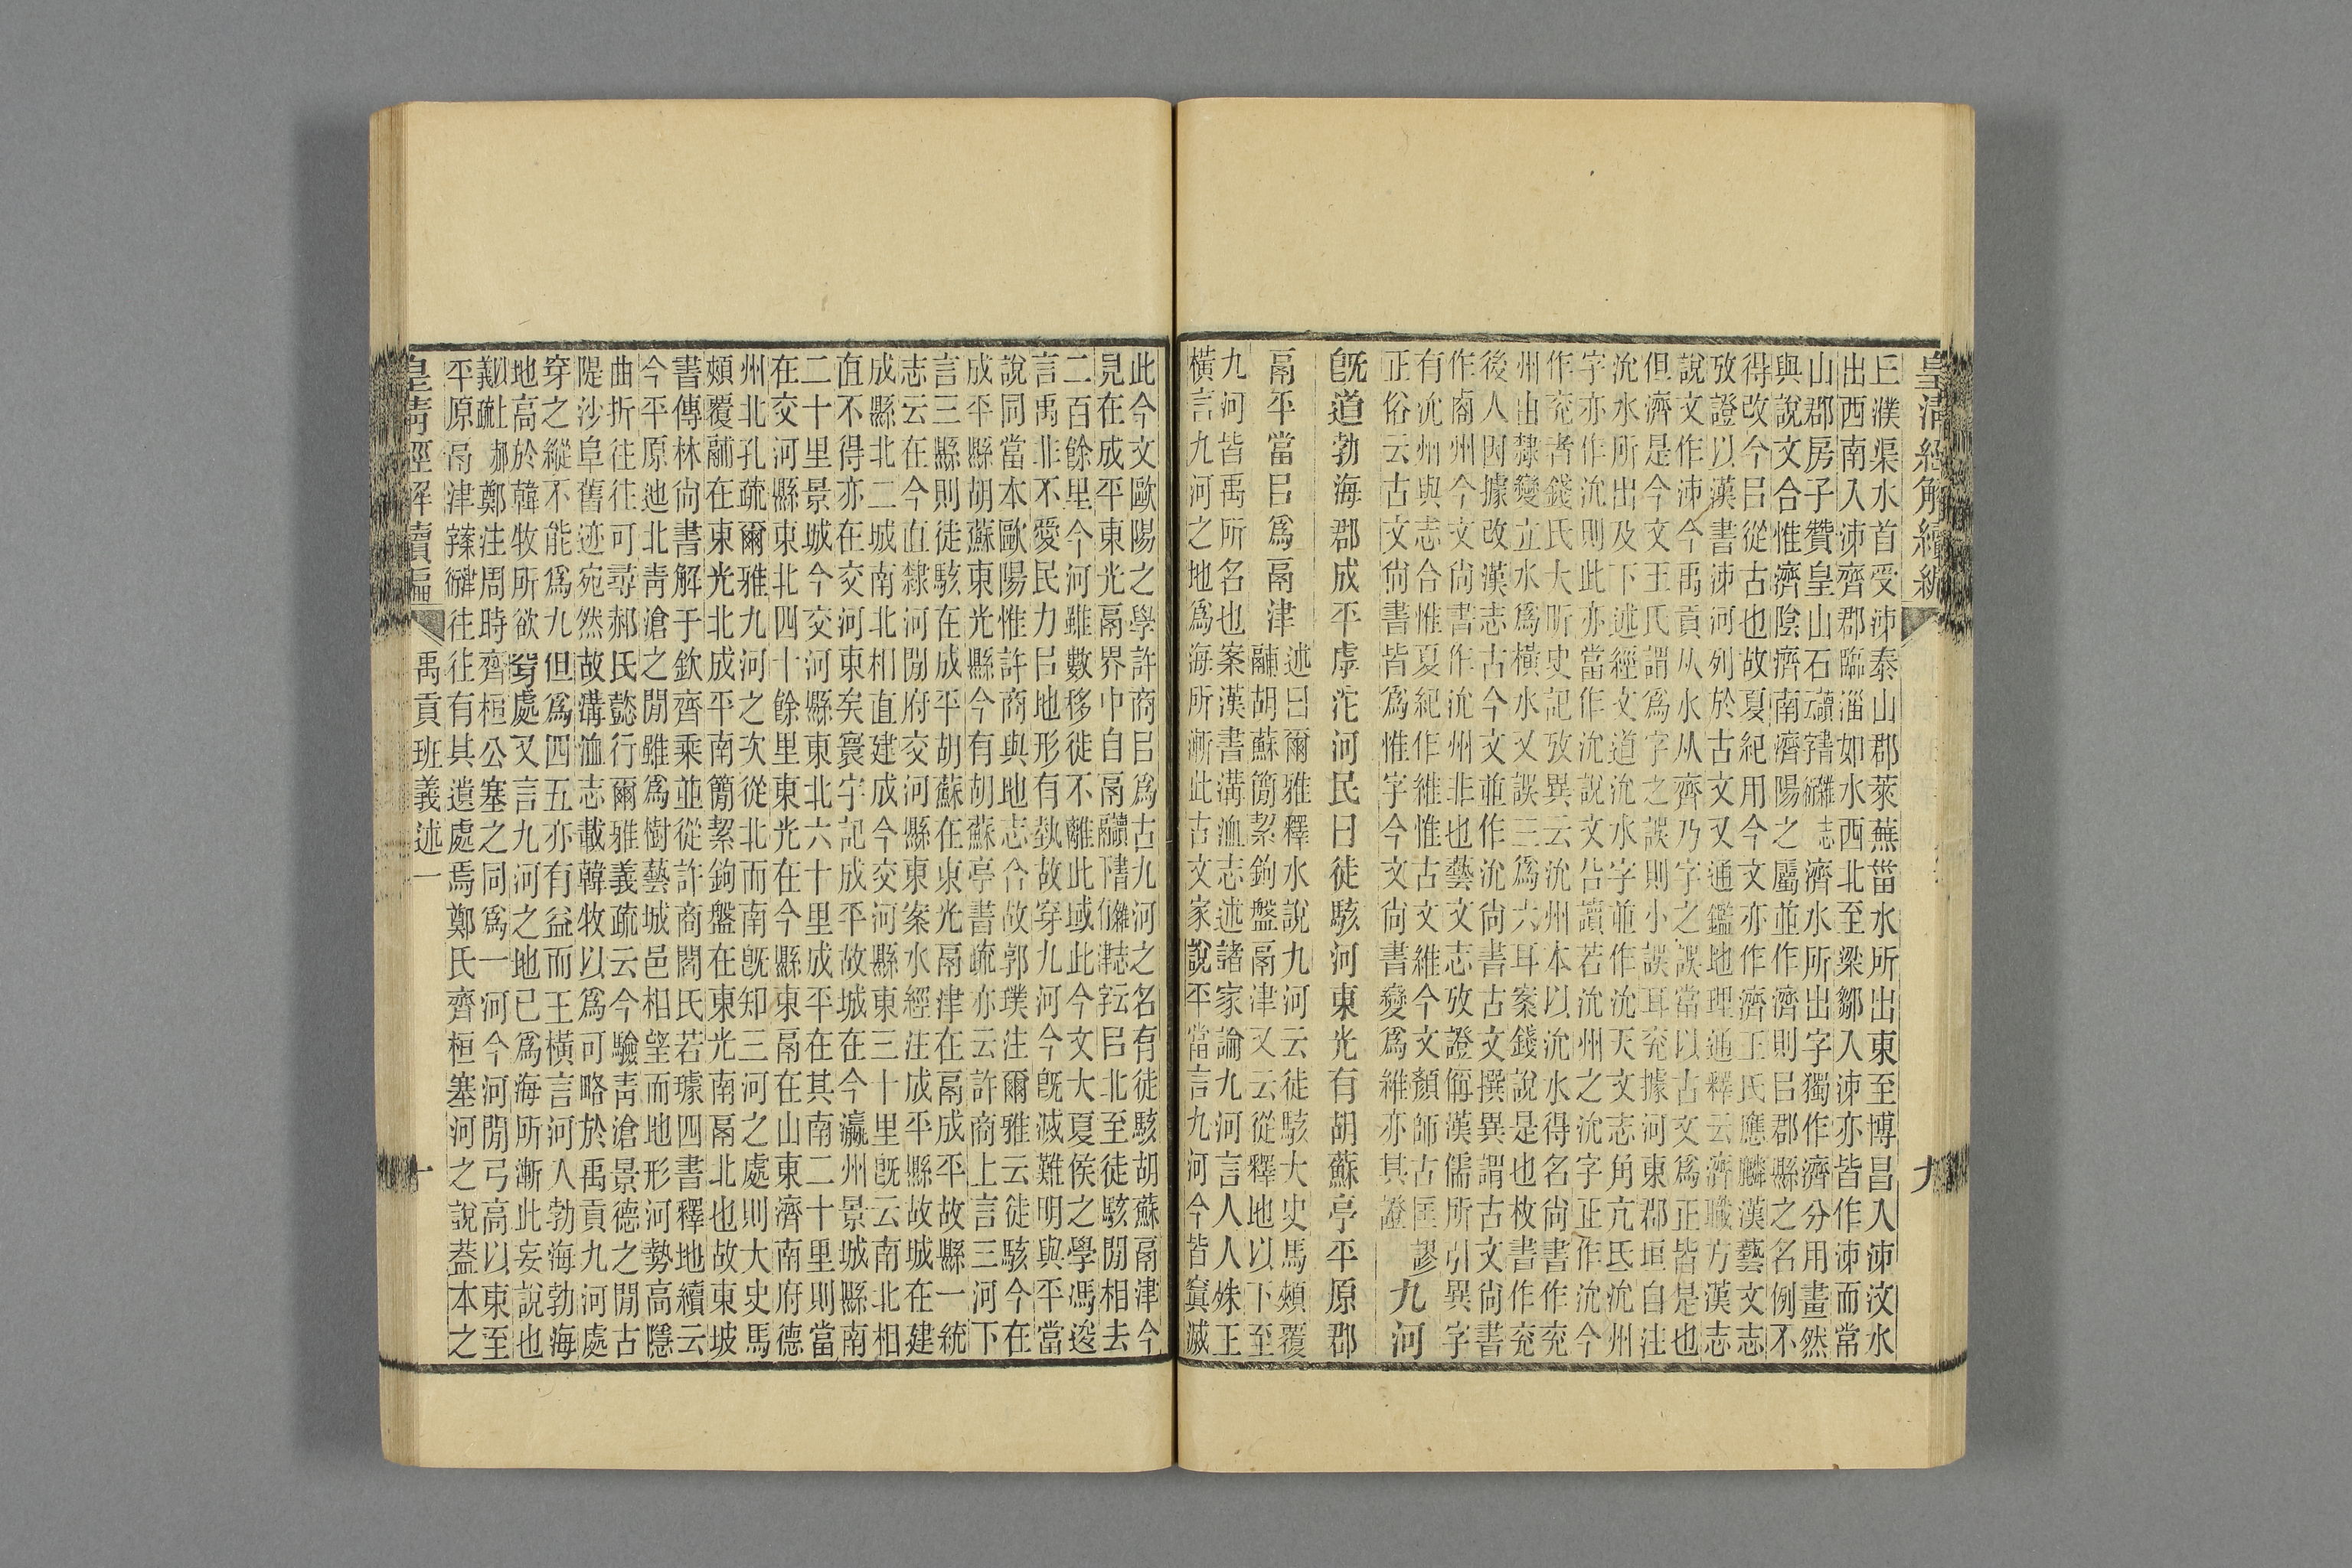 皇清經解續編 九
㠯濮渠水首受泲泰山郡萊蕪甾水所出東至博昌入泲汶水
出西南入泲齊郡臨淄如水西北至梁鄒入泲亦皆作泲而常
山郡房子贊皇山石讀書雜志濟水所出字獨作濟分用畫然
與說文合惟濟陰濟南濟陽之屬並作濟則㠯郡縣之名例不
得改今㠯從古也故夏紀用今文亦作濟王氏應麟漢藝文志
攷證以漢書泲河列於古文又通鑑地理通釋云濟職方漢志
說文作泲今禹貢从水从齊乃字之誤當以古文爲正皆是也
但濟是今文王氏謂爲字之誤則小誤耳兖據河東郡垣自注
沇水所出及下述經文道沇水字並作沇天文志角亢氐沇州
字亦作沇則此亦當作沇說文㕣讀若沇州之沇字正作沇今
作兖者錢氏大昕史記攷異云沇州本以沇水得名尙書作兖
州由隸變立水爲橫水又誤三爲六耳案錢說是也枚書作兖
後人因據改漢志古今文並作沇尙書古文撰異謂古文尙書
作㕣州今文尙書作沇州非也藝文志攷證偁漢儒所引異字
有沇州與志合惟夏紀作維惟古文維今文顏師古匡謬
正俗云古文尙書皆爲惟字今文尙書變爲維亦其證 九河
旣道勃海郡成平虖沱河民曰徒駭河東光有胡蘇亭平原郡
鬲平當㠯爲鬲津 述曰爾雅釋水說九河云徒駭大史馬頰覆
鬴胡蘇簡絜鉤盤鬲津又云從釋地以下至
九河皆禹所名也案漢書溝洫志述諸家論九河言人人殊王
橫言九河之地爲海所漸此古文家說平當言九河今皆寘滅
此今文歐陽之學許商㠯爲古九河之名有徒駭胡蘇鬲津今
見在成平東光鬲界中自鬲㠯北至徒駭閒相去
二百餘里今河雖數移徙不離此域此今文大夏侯之學馮逡
言禹非不愛民力㠯地形有埶故穿九河今旣滅難明與平當
說同當本歐陽惟許商與地志合故郭璞注爾雅云徒駭今在
成平縣胡蘇東光縣今有胡蘇亭書疏亦云許商上言三河下
言三縣則徒駭在成平胡蘇在東光鬲津在鬲成平故縣一統
志云在今直隸河閒府交河縣東案水經注成平縣故城在建
成縣北二城南北相直建成今交河縣東三十里旣云南北相
直不得亦在交河東矣寰宇記成平故城在今瀛州景城縣南
二十里景城今交河縣東北六十里成平在其南二十里則當
在交河縣東北四十餘里東光在今縣東鬲在山東濟南府德
州北孔疏爾雅九河之次從北而南旣知三河之處則大史馬
頰覆鬴在東光北成平南簡絜鉤盤在東光南鬲北也故東坡
書傳林尙書解于欽齊乘並從許商閻氏若璩四書釋地續云
今平原迆北靑滄之閒雖爲樹藝城邑相望而地形河勢高隱
曲折往往可尋郝氏懿行爾雅義疏云今驗靑滄景德之閒古
隄沙阜舊迹宛然故溝洫志載韓牧以爲可略於禹貢九河處
穿之縱不能爲九但爲四五亦有益而王橫言河入勃海勃海
地高於韓牧所欲穿處又言九河之地已爲海所漸此妄說也
鄭注周時齊桓公塞之同爲一河今河閒弓高以東至
平原鬲津往往有其遺處焉鄭氏齊桓塞河之說蓋本之
皇淸經解續編 禹貢班義述一 十